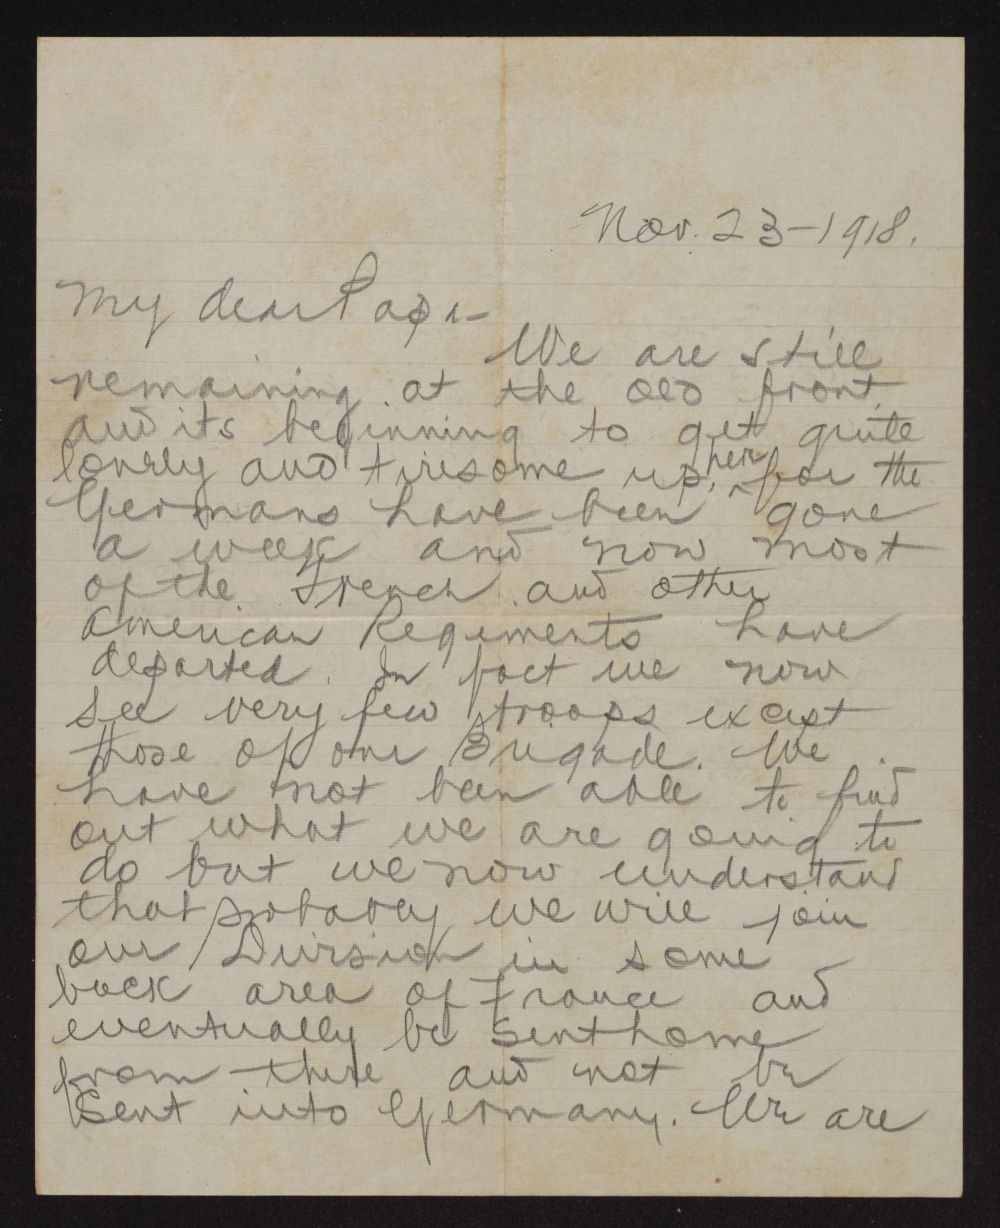 Nov. 23-1918.
My dear Papa-
We are still
remaining at the old front,
and its beginning to get quite
lonely and tiresome up, here for the
Germans have been gone
a week and now most
of the French and other
American Regiments have
departed. In fact we now
see very few troops except
those of our Brigade. We
have not been able to find
out what we are going to
do but we now understand
that probably we will join
our Division in some
back area of France and
eventually be sent home
from there and not be
sent into Germany. We are